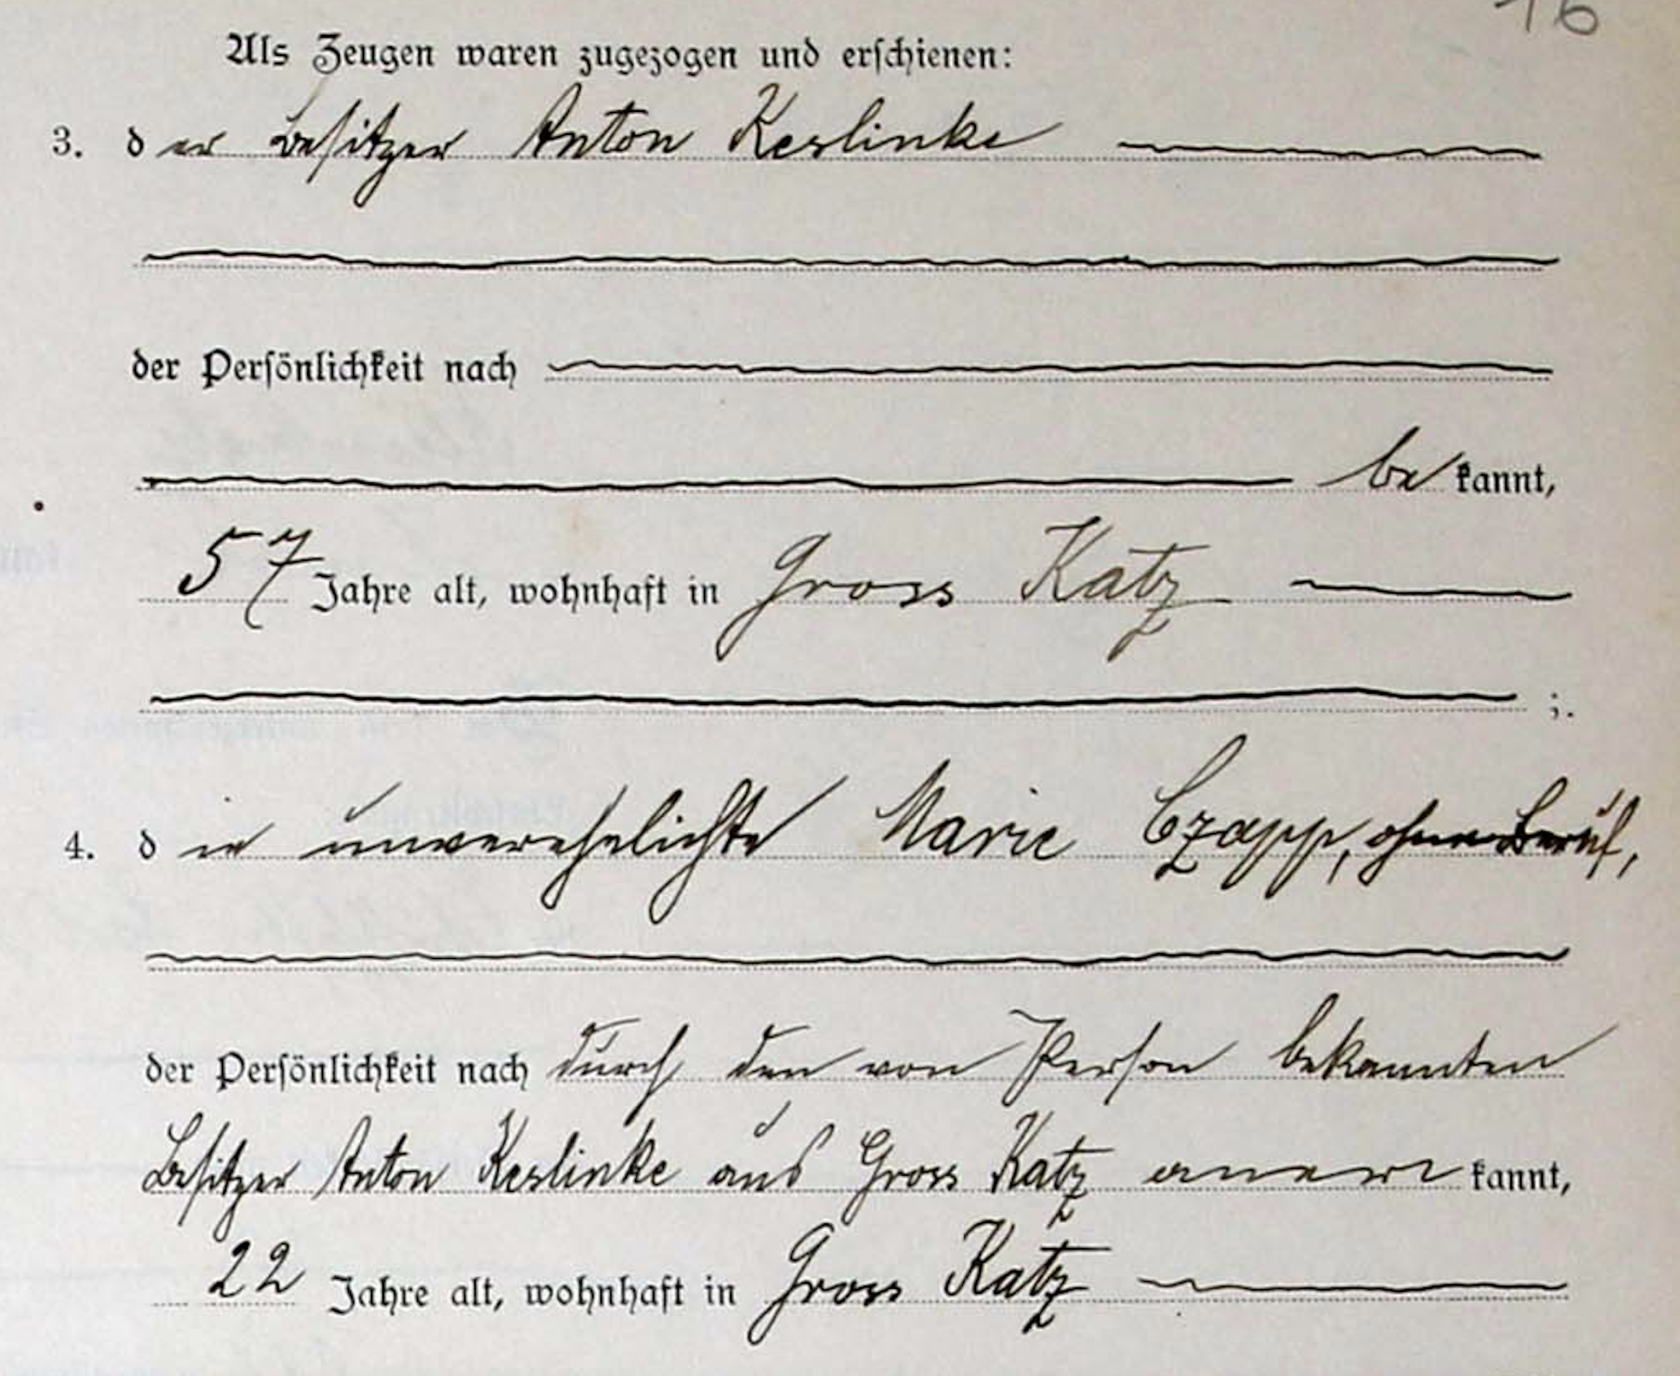 16
Als Zeugen waren zugezogen und erschienen:
3. der Besitzer Anton Keslinke
der Persönlichkeit nach
bekannt,
57 Jahre alt, wohnhaft in Gross Katz
;
4. die unverehelichte Marie Czapp, ohne Beruf,
der Persönlichkeit nach durch den von Person bekannten
Besitzer Anton Keslinke aus Gross Katz anerkannt,
22 Jahre alt, wohnhaft in Gross Katz